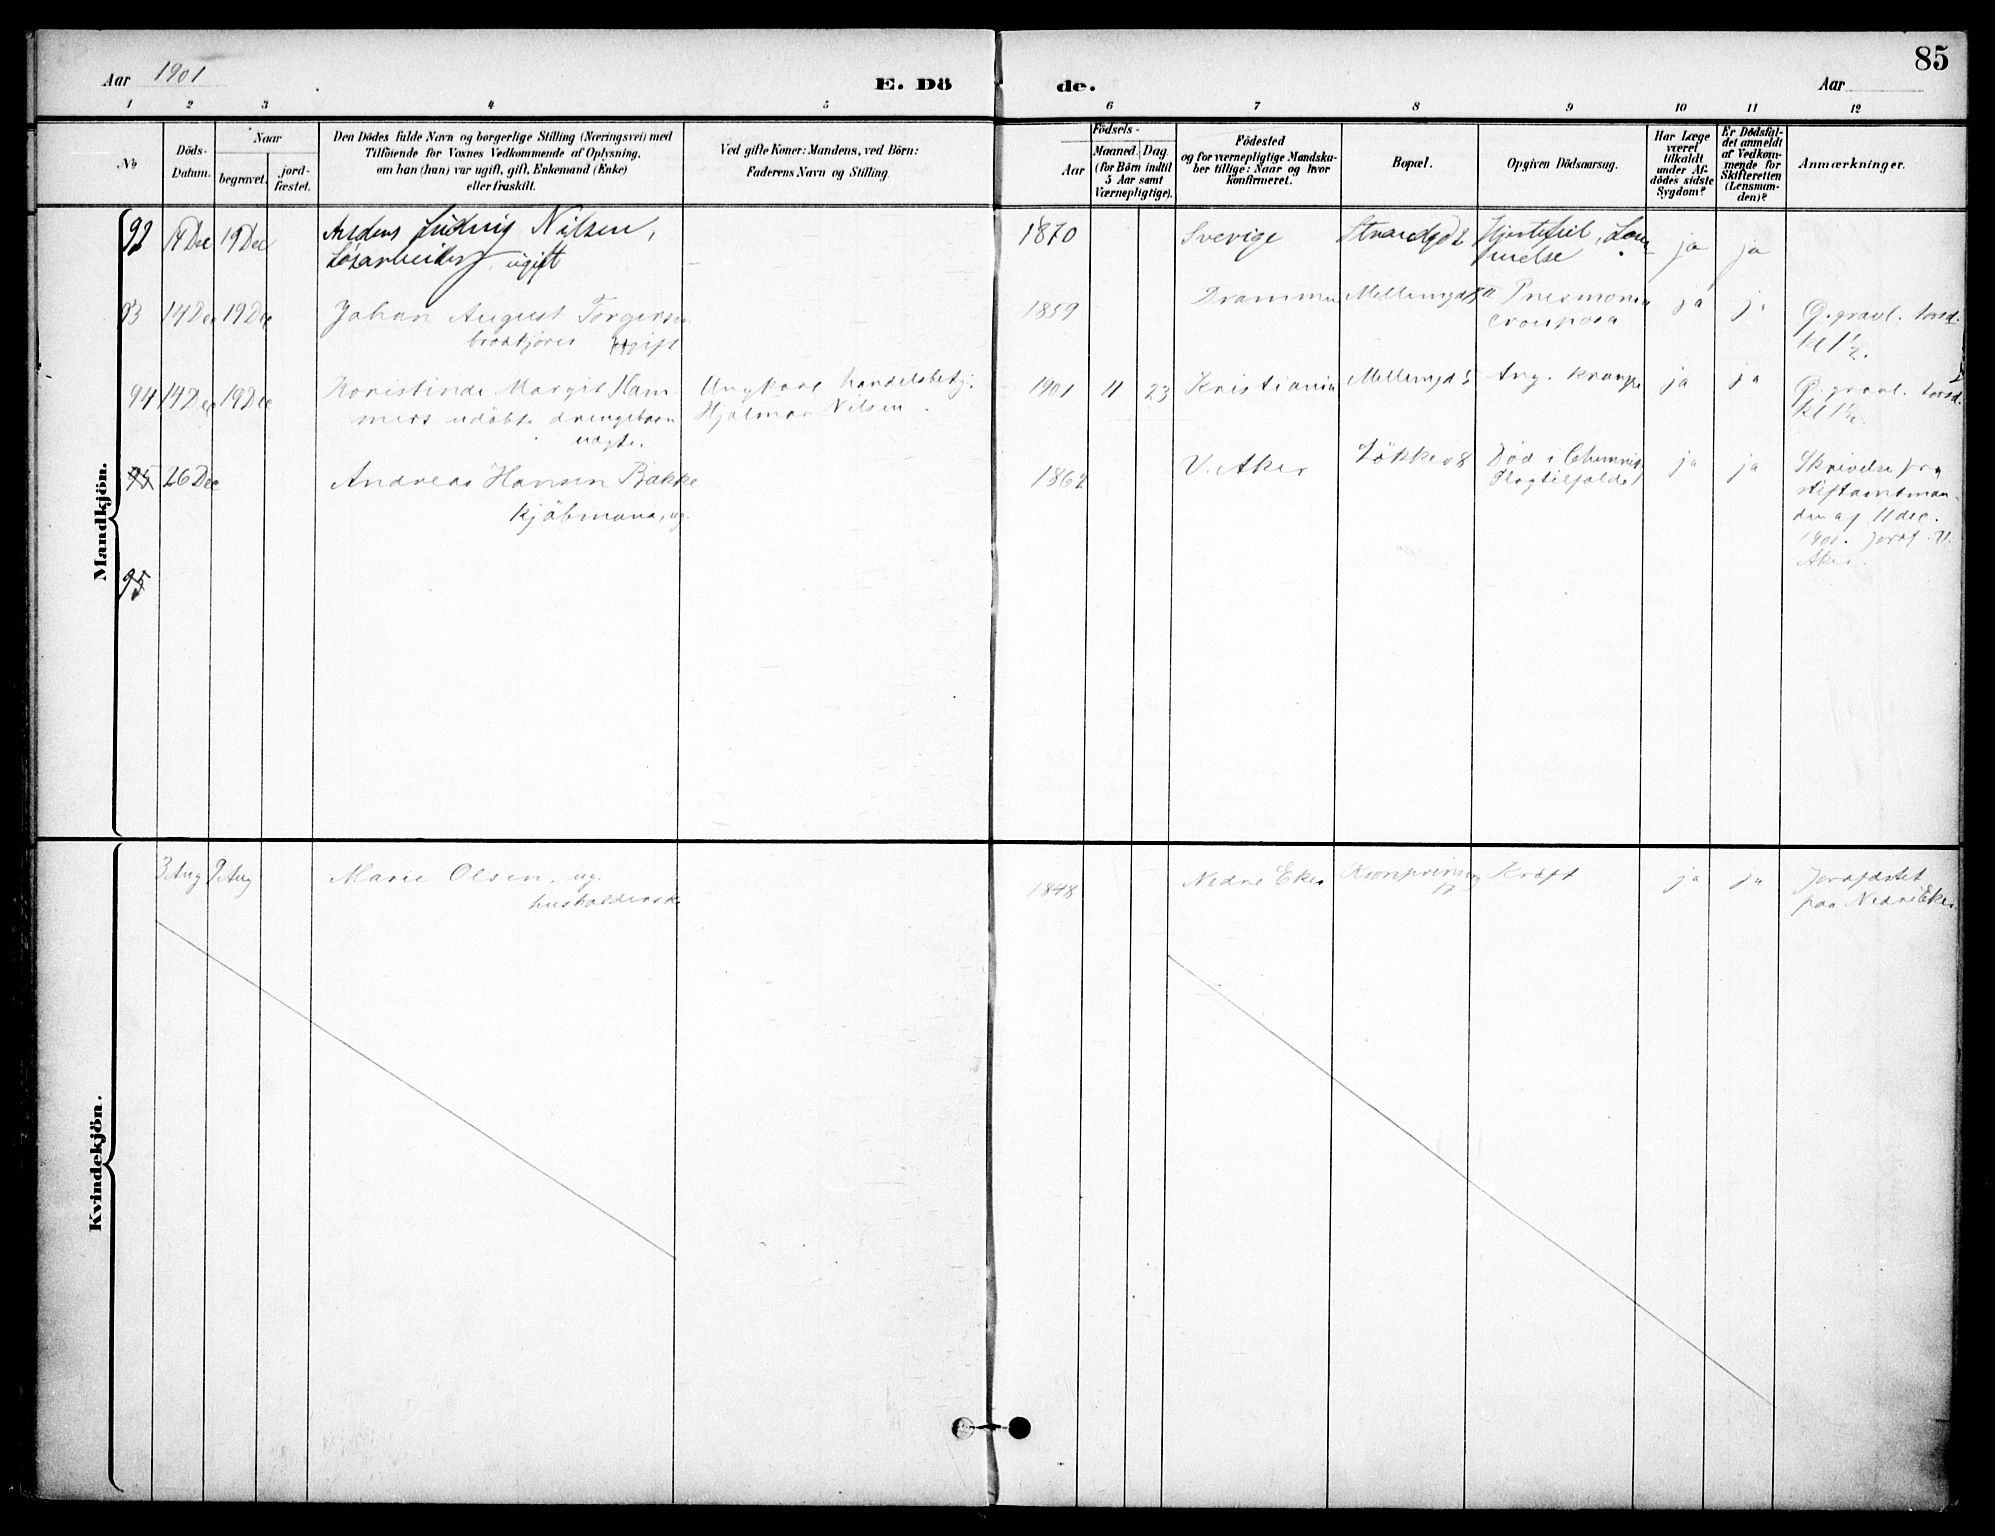 85
Aar 1901
E. Dö
de.
Aar
1 2 3 4 5 6 7 8 9 10 11 12
No
Döds-
Datum.
Naar
begravet.
jord-
fæstet.
Den Dödes fulde Navn og borgerlige Stilling (Næringsvei) med
Tilföiende for Voxnes Vedkommende af Oplysning,
om han (hun) var ugift, gift, Enkemand (Enke)
eller fraskilt.
Ved gifte Koner: Mandens, ved Börn:
Faderens Navn og Stilling.
Födsels-
Aar
Maaned.
Dag
(for Börn indtil
5 Aar samt
Værnepligtige).
Födested
og for værnepligtige Mandska-
ber tillige: Naar og hvor
konfirmeret.
Bopæl.
Opgiven Dödsaarsag.
Har Læge
været
tilkaldt
under Af-
dödes sidste
Sygdom?
Er Dödsfal-
det anmeldt
af Vedkom-
mende for
Skifteretten
(Lensman-
den)?
Anmærkninger.
Mandkjön.
92 14 Dec 19 Dec Anders Ludvig Nilsen,
Løsarbeider, ugift
1870 Sverige Strandgd 2 Hjertefeil,
ja ja
93 14 Dec 19 Dec Johan August Torgersen
ugift
1859 Drammen Mellemgd Pnevmonia
crouposa
ja ja
O. gravl. torsd.
kl 1½.
94 14 Dec 19 Dec Margit Ham-
mers udøbte drengebarn
uægte.
Ungkarl handelsbetj.
Hjalmar Nilsen.
1901 11 23 Kristiania Mellemgd 5 krampe
ja ja
O. gravl. torsd.
kl 1½.
95 26 Dec Andreas Hansen Bakke
kjøbmand, ug.
1862 V. Aker Løkkeg 8 Død i
ja ja
Skrivelse fra
stiftamtman-
den af 11 dec.
1901. V.
Aker.
95
Kvindekjön.
3 Aug 9 Aug Marie Olsen, ug.
husholderske
1848 Nedre Eker Kronprinseg
17
Kræft
ja ja
Jordfæstet
paa Nedre Eker.